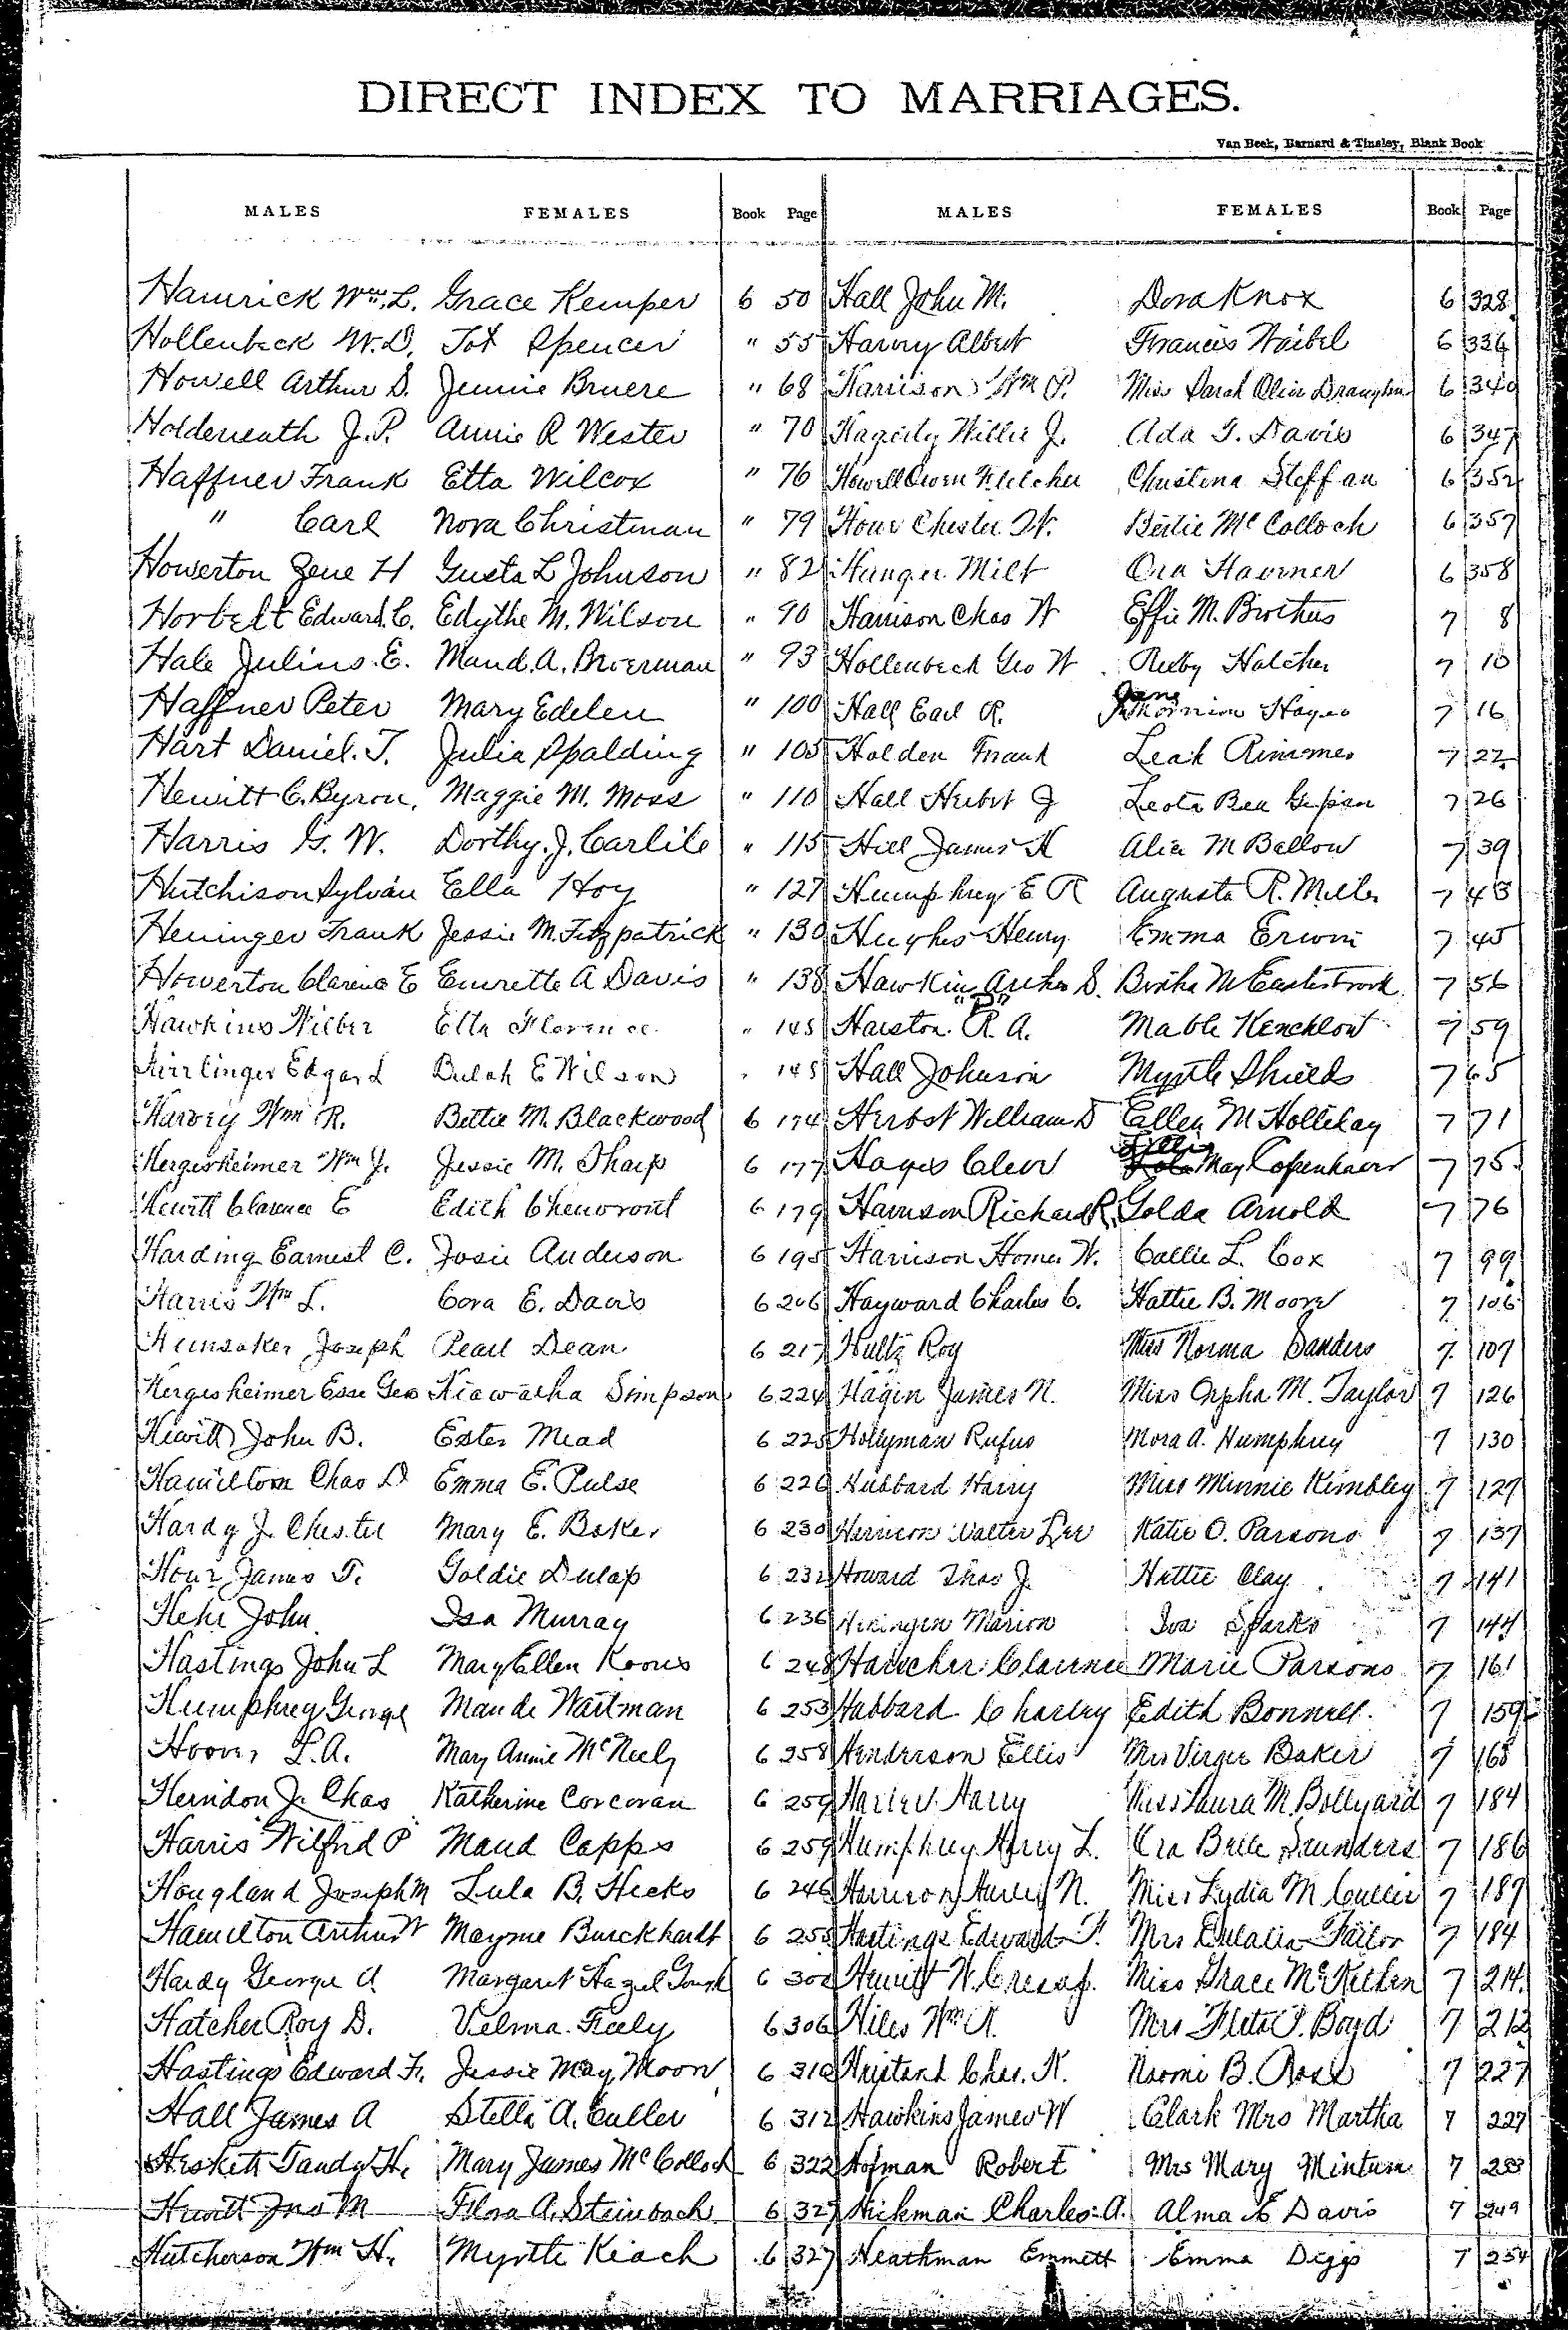 DIRECT INDEX TO MARRIAGES.
Van Beek, Barnard & Tinsley, Blank Book
MALES FEMALES Book Page MALES FEMALES Book Page
Hamrick Wm. L. Grace Kemper 6 50 Hall John M. Dora Knox 6 328
Hollenbeck W.D. Tot Spencer " 55 Harvey Albert Francis Waibel 6 336
Howell Arthur D. Jennie Bruere " 68 Harrison Wm P. Miss Sarah Olive 6 340
J.P. Annie R Wester " 70 Willie J. Ada G. Davis 6 347
Haffner Frank Etta Wilcox " 76 Howell Owen Fletcher Christena Steffan 6 352
" Carl Nora Christman " 79 Hour Chester W. Bertie McColloch 6 357
Howerton Zene H Gusta L Johnson " 82 Hunger Milt Ora 6 358
Horbelt Edward. C. Edythe M. Wilson " 90 Harrison Chas W Effie M. Brothers 7 8
Hale Julius. E. Maud. A. " 93 Hollenbeck Geo W Ruby Hatcher 7 10
Haffner Peter Mary Edelen " 100 Hall Earl R. Jane Hayes 7 16
Hart Daniel. T. Julia Spalding " 105 Holden Frank Leah 7 22
Hewitt C. Byron. Maggie M. Moss " 110 Hall Herbert J Leota Bea 7 26
Harris G. W. Dorthy. J. Carlile " 115 Hill James H Alice M Ballow 7 39
Hutchison Sylvan Ella Hoy " 127 Humphrey E R Augusta R. Miller 7 43
Heninger Frank Jessie M. Fitzpatrick " 130 Hughes Henry Emma Erwin 7 45
Howerton Clarence E Emrette A Davis " 138 Hawkins Arther S. Bertha M Easterbrook 7 56
Hawkins Wilber Etta Florence " 145 Harston "P" R. A. Mable Henchlow 7 59
Edgar L Bulah E Wilson " 148 Hall Johnson Myrtle Shields 7 65
Harvey Wm R. Bettie M. Blackwood 6 174 Herbst William D Ellen M Holliday 7 71
Hergesheimer Wm J. Jessie M. Tharp 6 177 Hayes Cleve Lillie May Copenhaver 7 75
Hewitt Clarence E Edith Chenowont 6 179 Harrison Richard R. Golda Arnold 7 76
Harding Earnest C. Josie Anderson 6 195 Harrison Homer W. Callie L. Cox 7 99
Harris Wm L. Cora E. Davis 6 206 Hayward Charles C. Hattie B. Moore 7 106
Hunsaker Joseph Pearl Dean 6 217 Hultz Roy Miss Norma Sanders 7 107
Hergesheimer Esse Geo Hiawatha Simpson 6 224 Hagin James N. Miss Orpha M. Taylor 7 126
Hewitt John B. Ester Mead 6 225 Hollyman Rufus Mora A. Humphrey 7 130
Hamilton Chas D Emma E. Pulse 6 226 Hubbard Harry Miss Minnie Kimbley 7 127
Hardy J. Chester Mary E. Baker 6 230 Walter Lee Katie O. Parsons 7 137
Hour James T. Goldie Dulap 6 232 Howard Thos J. Hettie Clay 7 141
Hehr John Isa Murray 6 236 Marion Iva Sparks 7 144
Hastings John L Mary Ellen Koons 6 248 Clarence Marie Parsons 7 161
Humphrey George Maude Waitman 6 253 Habbard Charley Edith Bonnell 7 159
Hoover L.A. Mary Annie McNeely 6 258 Henderson Ellis Mrs Virgie Baker 7 168
Herndon J. Chas Katherine Corcoran 6 259 Harry Miss Laura M. Bollyard 7 184
Harris Wilfrid P Maud Capps 6 259 Humphrey Harry L. Ora Belle Saunders 7 186
Hougland Joseph M Lula B. Hicks 6 246 Harrison N. Miss Lydia M. Culler 7 187
Hamilton Arthur W Mayme Burckhardt 6 255 Hastings Edward F. Mrs Eulalia Failor 7 184
Hardy George A. Margaret Hazel 6 300 Hewitt W. Cressap. Miss Grace 7 214
Hatcher Roy D. Velma. Feely 6 306 Hiles Wm A. Mrs Fleta P. Boyd 7 212
Hastings Edward Fr. Jessie May Moon 6 310 Chas. K. Naomi B. Ross 7 227
Hall James A Stella A. Culler 6 312 Hawkins James W Clark Mrs Martha 7 227
Heskett Tandy H. Mary James McColloch 6 322 Hofman Robert Mrs Mary Minturn 7 233
Hewitt Jno M Flora A. Steinbach 6 327 Hickman Charles A. Alma E Davis 7 249
Hutcherson Wm H. Myrtle Keach 6 327 Heathman Emmett Emma Diggs 7 254